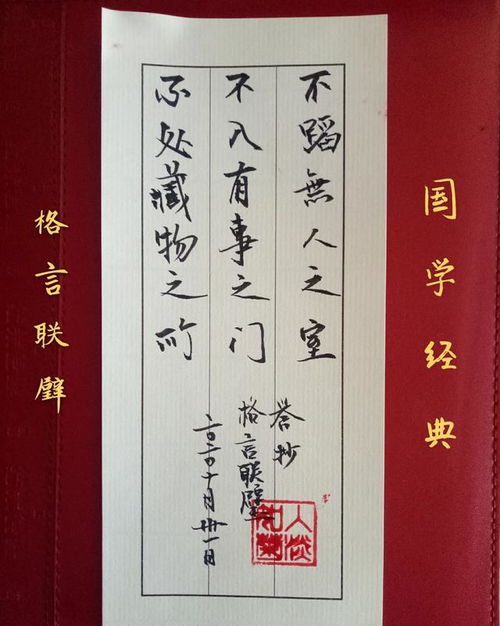 国学经典
不蹈無人之室
不入有事之门
不处藏物之所
誊抄
格言联璧
二〇二〇十月卅一日
人淡如菊
格言联璧